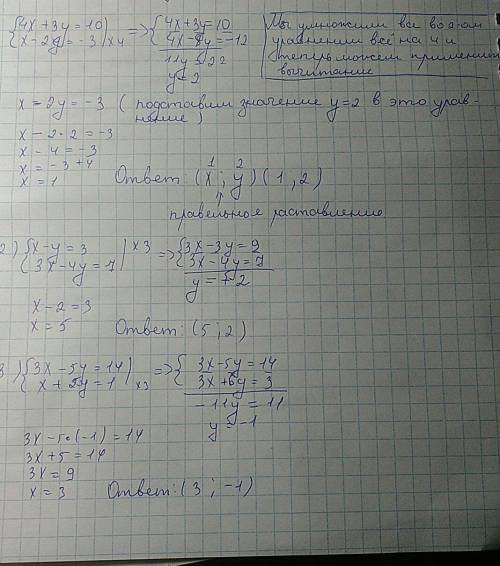 {4x + 3y = 10 => {4x + 3y = 10
{x - 2y = -3 | x4 4x - 8y = -12
11y = 22
y = 2
Мы умножили все во втором
уравнении всё на 4 и
теперь можем применить
вычитание
x - 2y = -3 ( подставим значение y=2 в это урав-
нение )
x - 2·2 = -3
x - 4 = -3
x = -3 + 4
x = 1 Ответ: (x ; y) (1 , 2)
1 2
правельное раставление
2) {x - y = 3 | x3 => {3x - 3y = 9
{3x - 4y = 7 3x - 4y = 7
y = 2
x - 2 = 3
x = 5 Ответ: (5 ; 2)
3) {3x - 5y = 14 => { 3x - 5y = 14
{x + 2y = 1 | x3 3x + 6y = 3
-11y = 11
y = -1
3x - 5·(-1) = 14
3x + 5 = 14
3x = 9
x = 3 Ответ: (3 ; -1)